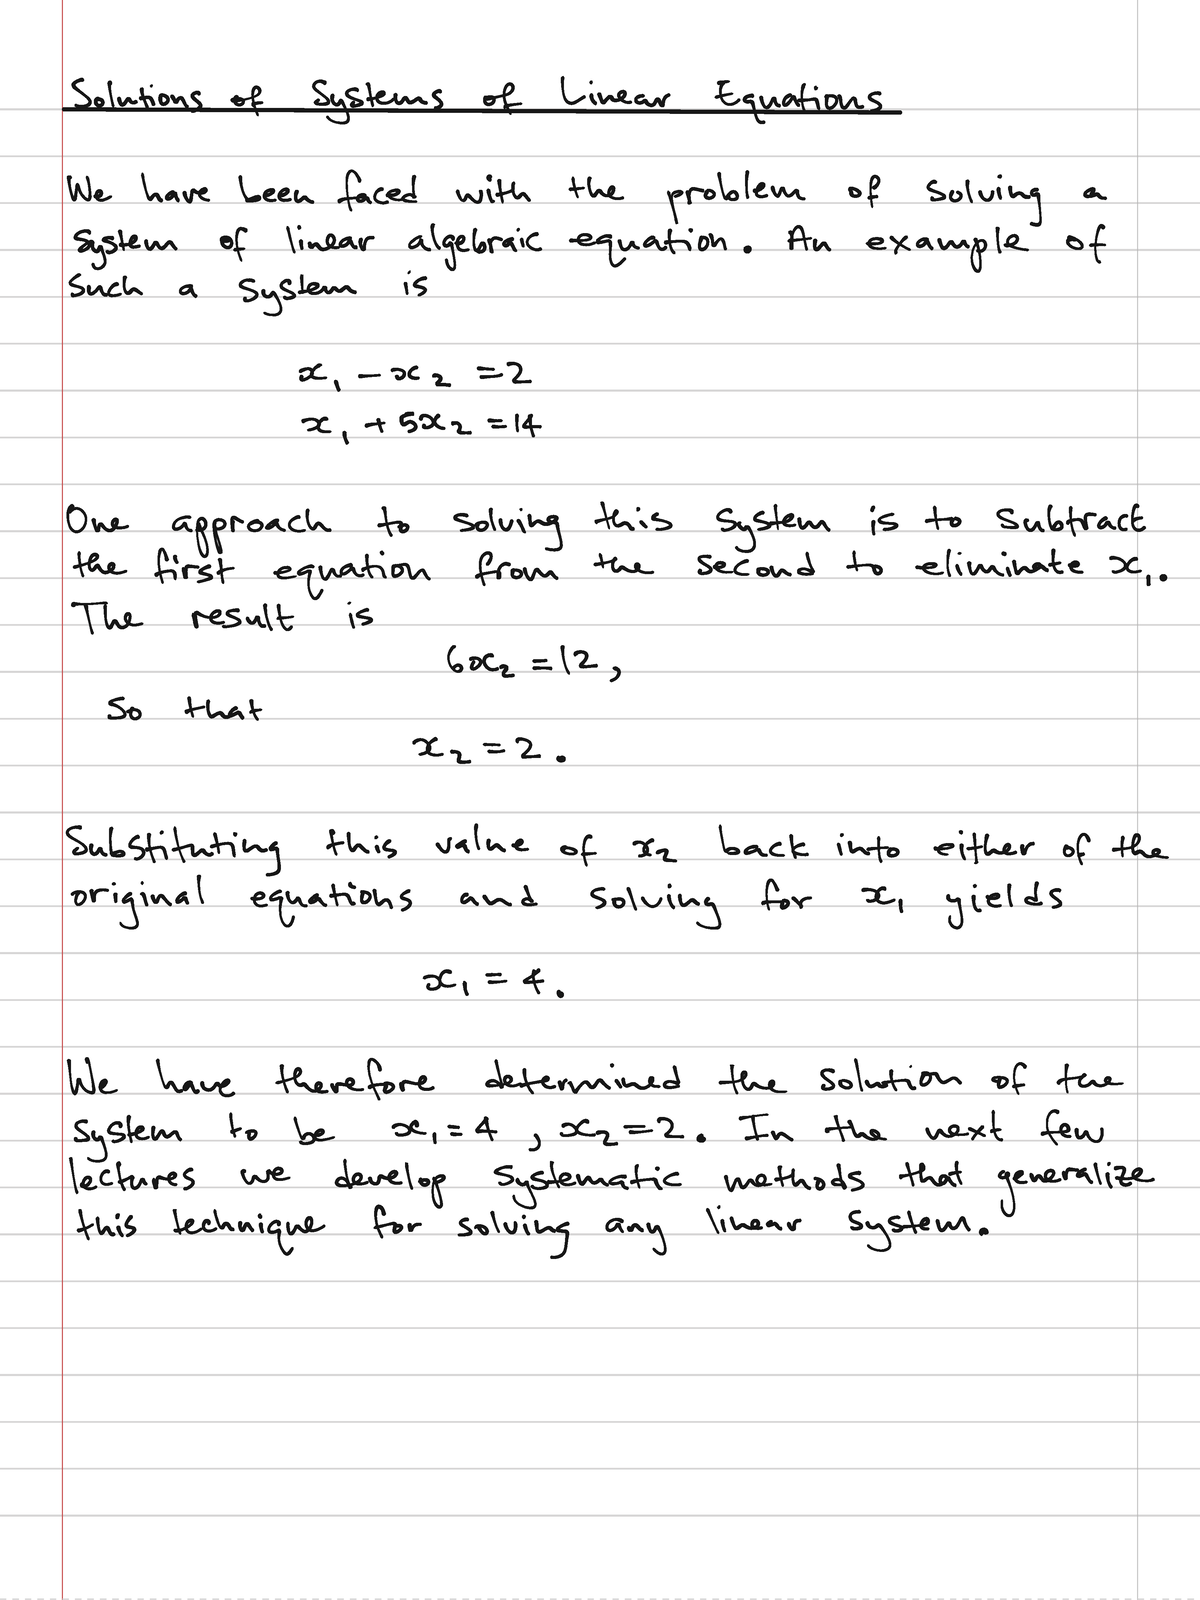 Solutions of Systems of Linear Equations
We have been faced with the problem of solving a
system of linear algebraic equation. An example of
such a system is
x₁ - x₂ = 2
x₁ + 5x₂ = 14
One approach to solving this system is to subtract
the first equation from the second to eliminate x₁.
The result is
6x₂ = 12,
so that
x₂ = 2.
Substituting this value of x₂ back into either of the
original equations and solving for x₁ yields
x₁ = 4.
We have therefore determined the solution of the
system to be x₁ = 4, x₂ = 2. In the next few
lectures we develop systematic methods that generalize
this technique for solving any linear system.